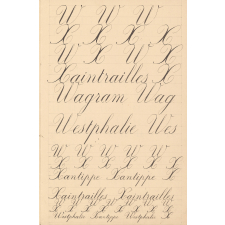 W W W
X X X X
W X W X
Xaintrailles X
Wagram Wag
Westphalie Wes
W W W W W W
X X X X X X X
Xantippe Xantippe X
Xaintrailles Xaintrailles
Westphalie Xantippe Westphalie X